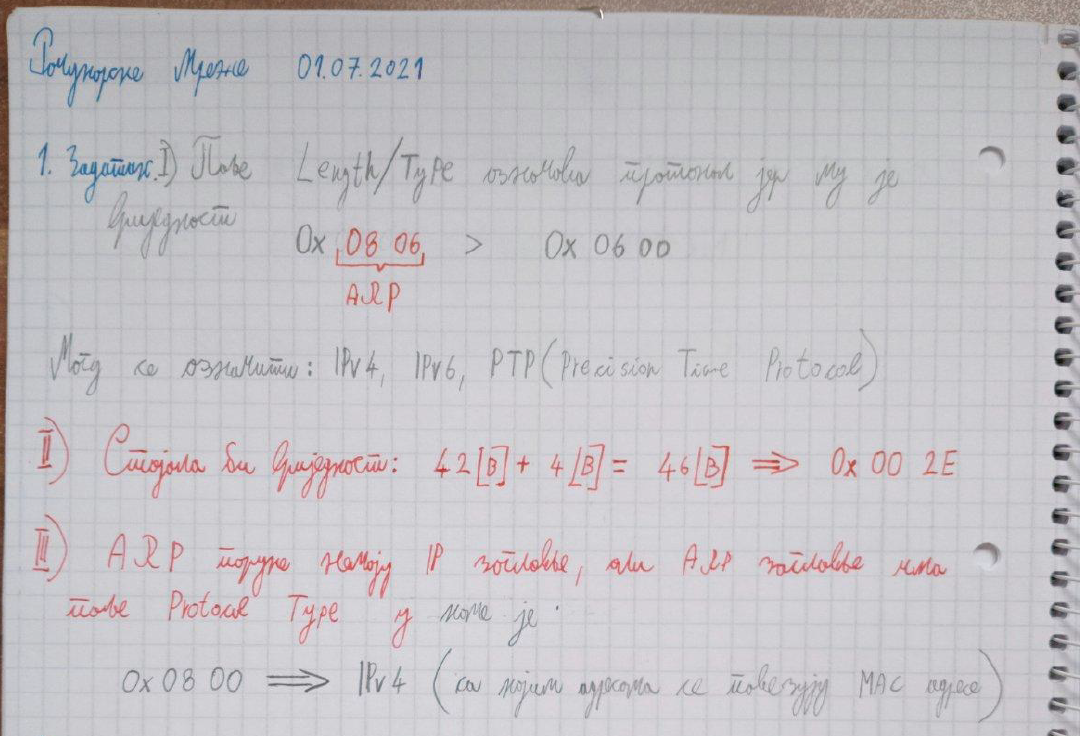 Рачунарске Мреже 01.07.2021
1. Задатак. I) Поље Length/Type означава протокол јер му је
вриједност
0x 08 06 > 0x 06 00
ARP
Могу се означити: IPv4, IPv6, PTP (Precision Time Protocol)
II) Стојала би вриједност: 42[B] + 4[B] = 46[B] ⇒ 0x 00 2E
III) ARP поруке немају IP заглавље, али ARP заглавље има
поље Protocol Type у коме је
0x 08 00 ⟹ IPv4 (са којим адресама се повезују MAC адресе)